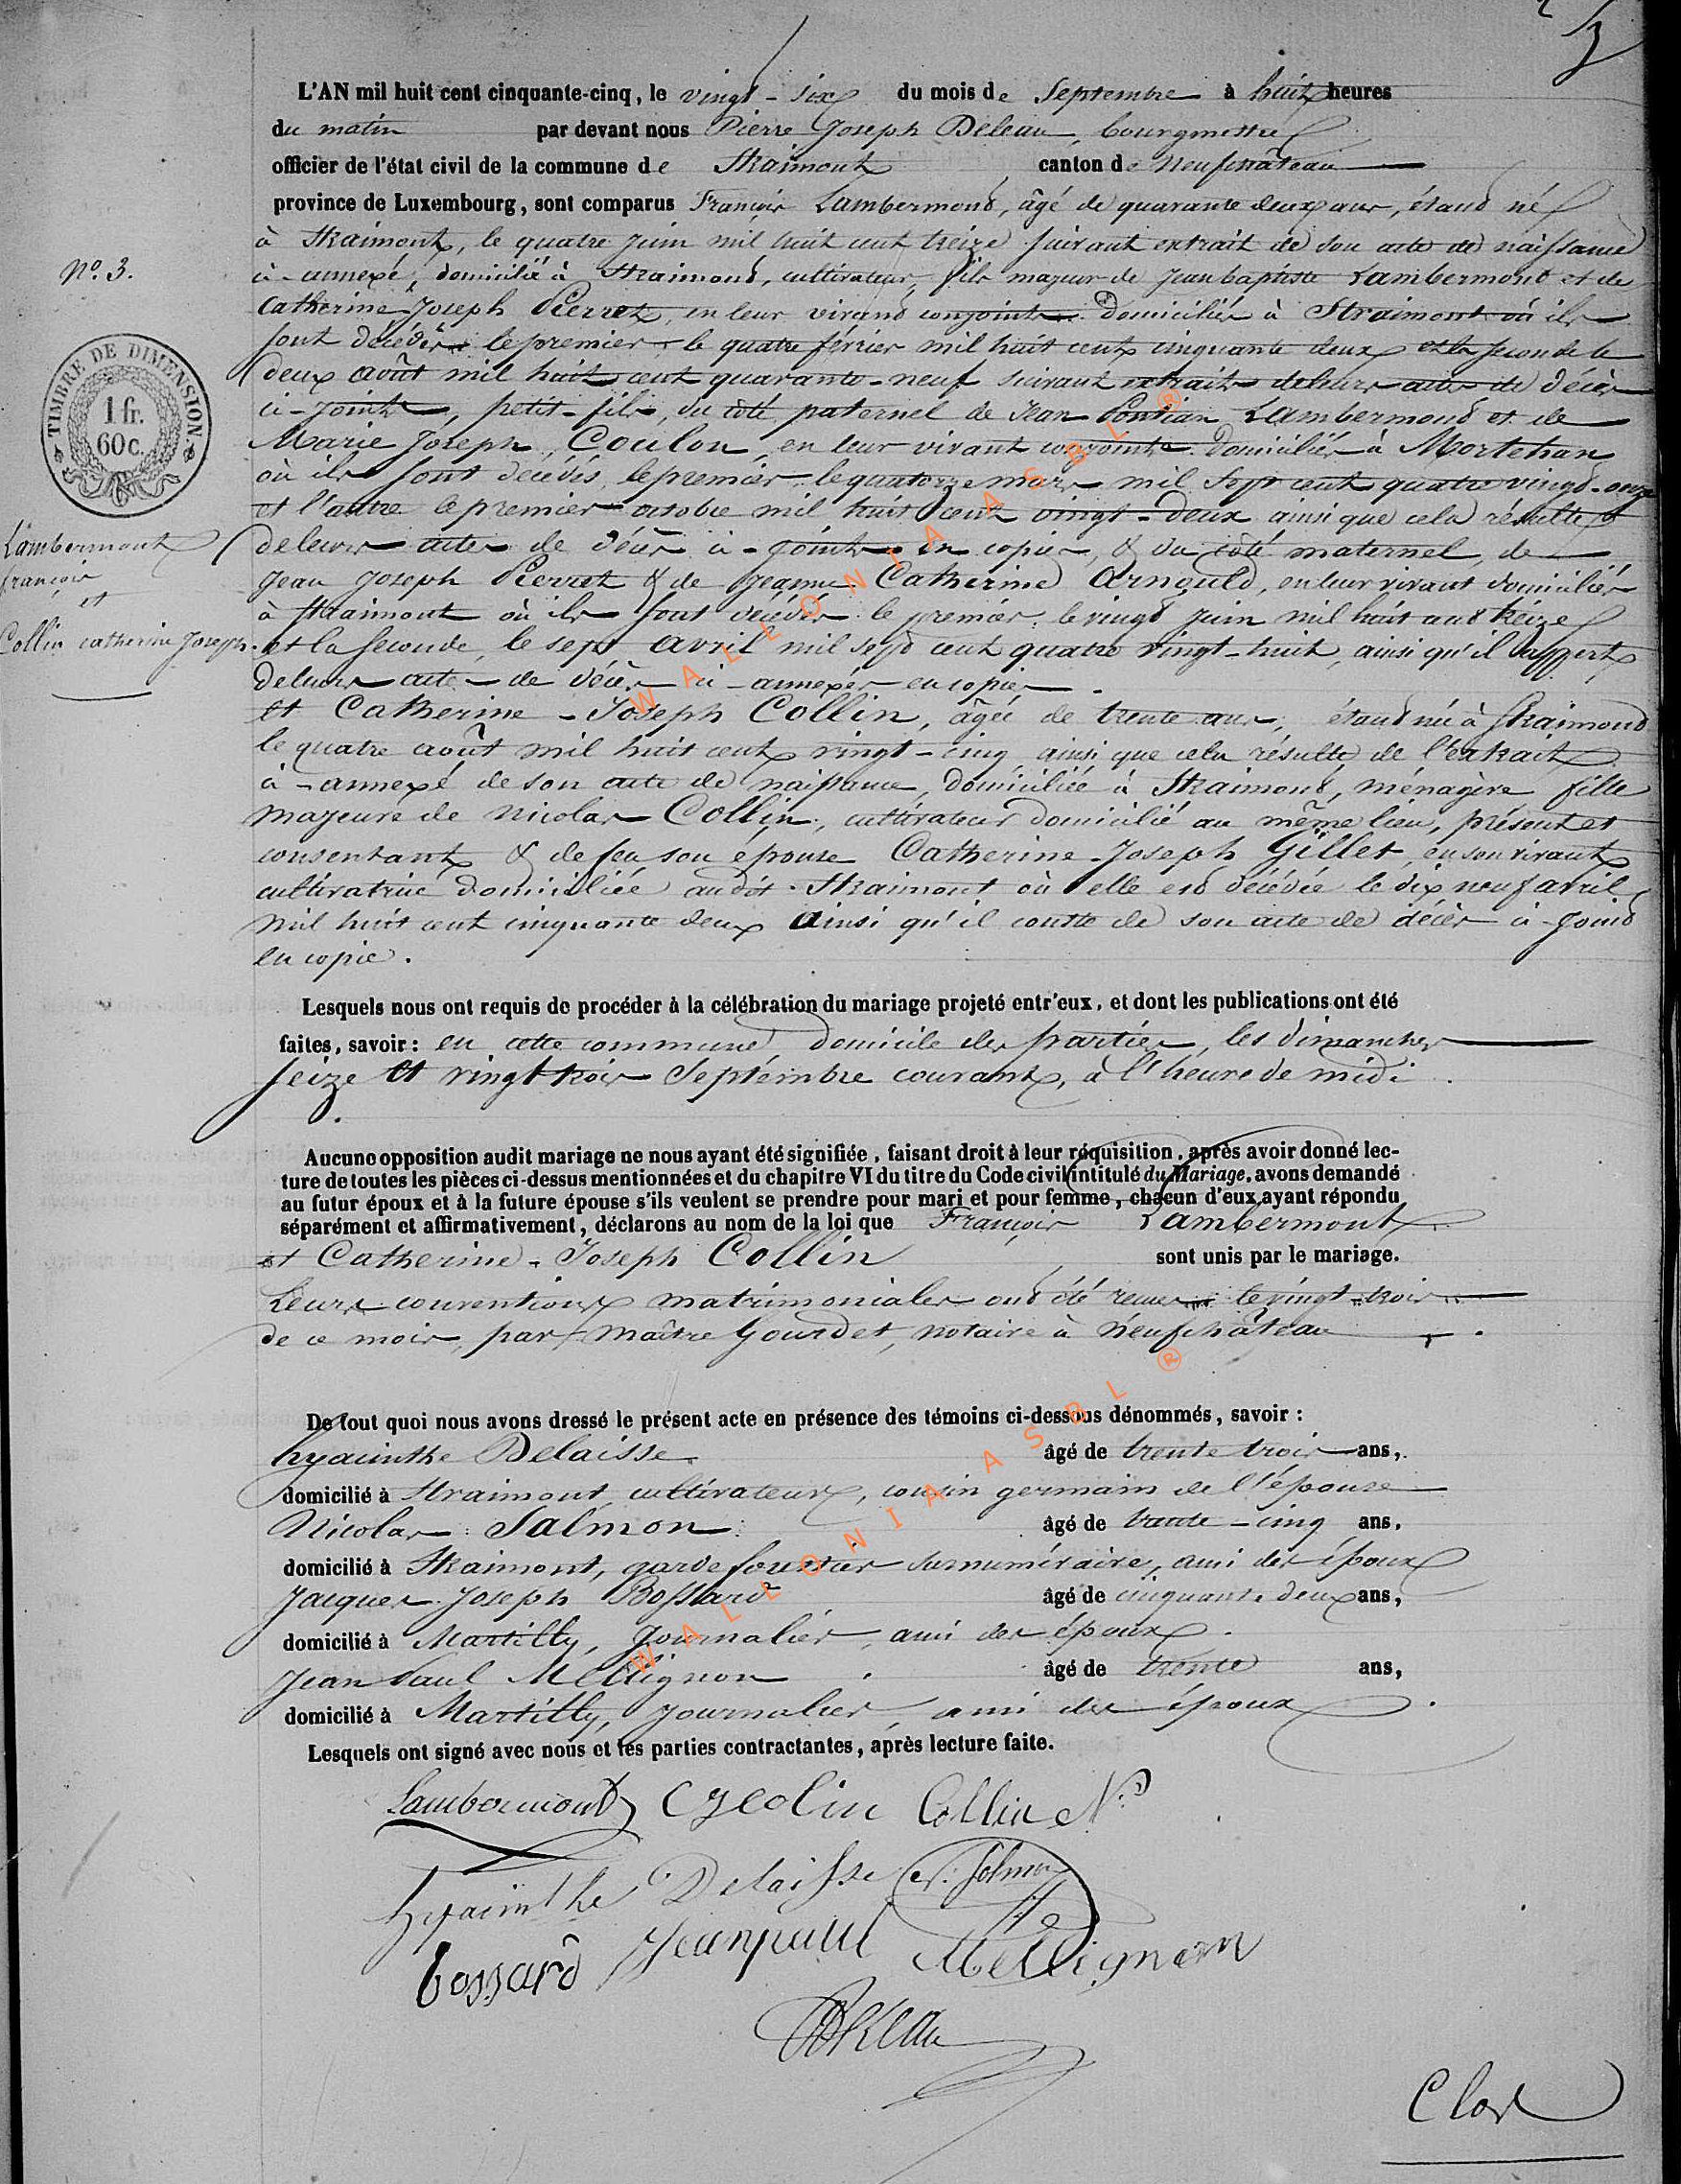 3
L'AN mil huit cent cinquante-cinq, le vingt-six du mois de Septembre à huit heures
du matin par devant nous Pierre Joseph Deleau, bourgmestre
officier de l'état civil de la commune de Straimont canton de Neufchâteau
province de Luxembourg, sont comparus François Lambermont, âgé de quarante deux ans, étant né
à Straimont, le quatre juin mil huit cent treize suivant extrait de son acte de naissance
ci-annexé, domicilié à Straimont, cultivateur, fils majeur de Jean baptiste Lambermont et de
Catherine Joseph Pierret, en leur vivant conjoints domiciliés à Straimont où ils
sont décédés le premier le quatre février mil huit cent cinquante deux et la seconde le
deux août mil huit cent quarante-neuf suivant extraits de leurs actes de décès
ci-joints, petit-fils, du côté paternel de Jean Pontian Lambermont et de
Marie Joseph, Coulon, en leur vivant conjoints domiciliés à Mortehan
où ils sont décédés, le premier le quatorze mars mil sept cent quatre vingt-onze
et l'autre le premier octobre mil huit cent vingt-deux ainsi que cela résulte
de leurs actes de décès ci-joints en copies, & du côté maternel, de
Jean Joseph Pierret & de Jeanne Catherine Arnould, en leur vivant domiciliés
à Straimont où ils sont décédés le premier le vingt juin mil huit cent treize
et la seconde, le sept avril mil sept cent quatre vingt-huit, ainsi qu'il appert
de leurs actes de décès ci-annexés en copies.
et Catherine-Joseph Collin, âgée de trente ans, étant née à Straimont
le quatre août mil huit cent vingt-cinq ainsi que cela résulte de l'extrait
ci-annexé de son acte de naissance, domiciliée à Straimont, ménagère fille
majeure de Nicolas Collin, cultivateur domicilié au même lieu, présent et
consentant & de feu son épouse Catherine-Joseph Gillet, en son vivant
cultivatrice domiciliée audit Straimont où elle est décédée le dix neuf avril
mil huit cent cinquante deux ainsi qu'il conste de son acte de décès ci-joint
en copie.
No. 3.
TIMBRE DE DIMENSION.
1 fr.
60 c.
Lambermont
françois
et
Collin catherine Joseph.
Lesquels nous ont requis de procéder à la célébration du mariage projeté entr'eux, et dont les publications ont été
faites, savoir: en cette commune, domicile des parties, les dimanches
seize et vingt trois Septembre courant, à l'heure de midi.
Aucune opposition audit mariage ne nous ayant été signifiée, faisant droit à leur réquisition, après avoir donné lec-
ture de toutes les pièces ci-dessus mentionnées et du chapitre VI du titre du Code civil intitulé du Mariage, avons demandé
au futur époux et à la future épouse s'ils veulent se prendre pour mari et pour femme, chacun d'eux ayant répondu
séparément et affirmativement, déclarons au nom de la loi que François Lambermont
et Catherine-Joseph Collin sont unis par le mariage.
Leurs conventions matrimoniales ont été reçues le vingt-trois
de ce mois, par Maître Gourdet, notaire à Neufchâteau.
De tout quoi nous avons dressé le présent acte en présence des témoins ci-dessous dénommés, savoir :
hyacinthe Delaisse âgé de trente trois ans,
domicilié à Straimont, cultivateur, cousin germain de l'épouse
Nicolas Salmon âgé de trente-cinq ans,
domicilié à Straimont, garde forestier surnuméraire, ami des époux
Jacques Joseph Bossard âgé de cinquante deux ans,
domicilié à Martilly, Journalier, ami des époux.
Jean Paul Mellignon âgé de trente ans,
domicilié à Martilly, journalier, ami des époux.
Lesquels ont signé avec nous et les parties contractantes, après lecture faite.
Lambermont CJColin Collin N.
hyacinthe Delaisse N. Salmon
bossard Jeanpaul Mellignon
Deleau
Clos
WALLONIA ASBL ®
WALLONIA ASBL ®